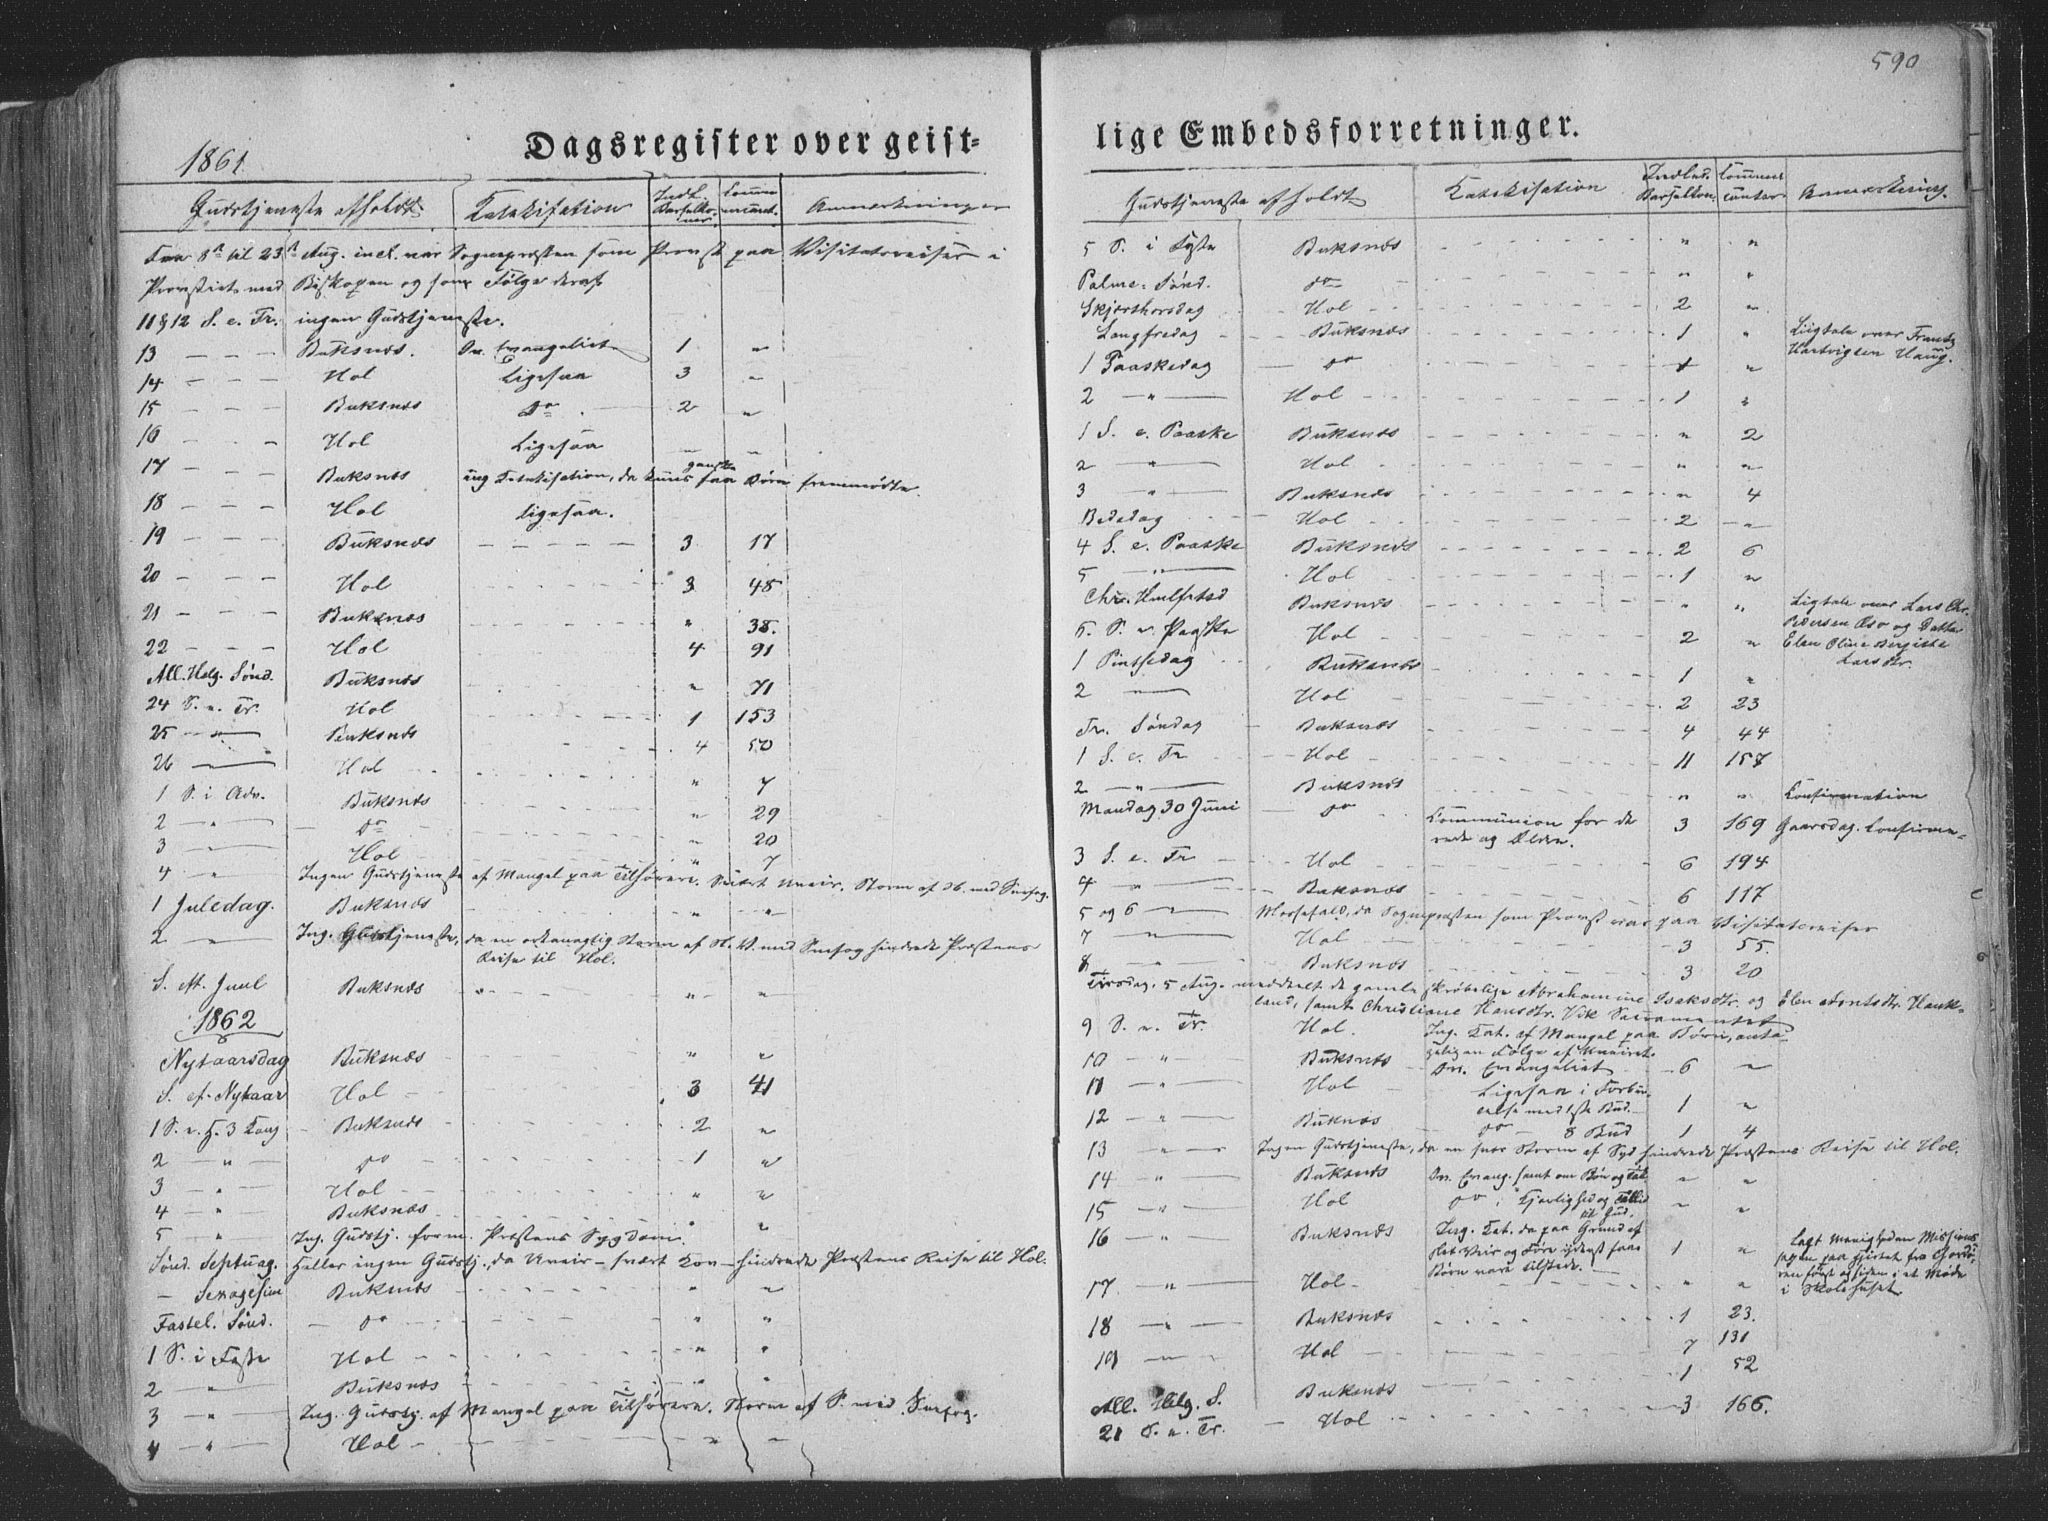 590
Dagsregister over geist-
1861.
Gudstjeneste afholdt Katekisation Indl. Barselkoner Communicant. Anmærkninger
Fra 8de til 23de Aug. incl. var Sognepræsten som Provst paa Visitatsreiser i
Provstiet med Biskopen og som Følge deraf
11 & 12 S. e. Tr. ingen Gudstjeneste.
13 — — — Buksnæs. Ov. Evangeliet 1 "
14 — — — Hol Ligesaa 3 "
15 — — — Buksnæs do 2 "
16 — — — Hol Ligesaa " "
17 — — — Buksnæs ing Katekisation, da kuns ganske faa Børn fremmødte.
18 — — — Hol Ligesaa.
19 — — — Buksnæs 3 17
20 — — — Hol 3 48
21 — — — Buksnæs " 38.
22 — — — Hol 4 91
All. Helg. Sønd. Buksnæs " 71
24 S. e. Tr. Hol 1 153
25 — " — Buksnæs 4 50
26 — Hol " 7
1 S. i Adv. Buksnæs " 29
2 — " — do " 20
3 — " — Hol " 7
4 — " — Ingen Gudstjeneste af Mangel paa Tilhørere. Svært Uveir, Storm af med Snefog.
1 Juledag. Buksnæs " "
2 — " — Ing. Gudstjeneste, da en orkanagtig Storm af N. V. med Snefog hindrede Præstens
Reise til Hol.
S. eft. Juul Buksnæs " " "
1862
Nytaarsdag Buksnæs " "
S. ef. Nytaar Hol 3 41
1 S. e. H. 3 Kong Buksnæs 2 "
2 — " — do 1 "
3 — " — Hol " "
4 — " Buksnæs " "
5 — " Ing. Gudstj. form. Præstens Sygdom.
Sønd. Septuag. Heller ingen Gudstj., da Uveir – svært Kov – hindrede Præstens Reise til Hol.
— Sexagesim Buksnæs " "
Fastel. Sønd. — do " "
1 S. i Faste Hol " "
2 — " — Buksnæs " "
3 — " — Ing. Gudstj. af Mangel paa Tilhørere. Storm af S. med Snefog.
4 — " — Hol " "
lige Embedsforretninger.
Gudstjeneste afholdt Katekisation Indled. Barselkon. Communicanter Anmærkning.
5 S. i Faste Buksnæs " "
Palme-Sønd. do " "
Skjærthorsdag Hol 2 "
Langfredag Buksnæs 1 " Liigtale over Frantz
Hartvigsen Haug.
1 Paaskedag — do 1 "
2 — " — Hol 1 "
1 S. e. Paaske Buksnæs " 2
2 — " — Hol " "
3 — " — Buksnæs " 4
Bededag Hol 2 "
4 S. e. Paaske Buksnæs 2 6
5 — " — Hol 1 "
Chr. Himlfartsd Buksnæs " " Ligtale over Lars Chr.
Pedersen og Datter
6. S. e. Paaske Hol 2 " Elen Oline Bergitte
Larsdtr.
1 Pintsedag Buksnæs 1 "
2 — Hol 2 23
Tr. Søndag — Buksnæs 4 44
1 S. e. Tr Hol 11 157
2 — " — Buksnæs " " Confirmation
Mandag 30 Juni — do Communion for de 3 169 Gaarsdag. Confirme-
rede og Ældre.
3 S. e. Tr Hol 6 194
4 — " — Buksnæs 6 117
5 og 6 — Messefald, da Sognepræsten som Provst var paa Visitatsreiser
7 — Hol 3 55.
8 — Buksnæs 3 20
Tirsdag. 5 Aug. meddeelt de gamle skrøbelige Abrahamine Isaksdtr. og Elen Arntsdtr. Hauk-
land, samt Christiane Hansdtr. Vik Sacramentet
9 S. e. Tr. Hol. Ing. Kat. af Mangel paa Børn, anta-
gelig en Følge af Uveiret.
10 — " — Buksnæs Ov. Evangeliet 6 "
11 — " Hol Ligesaa i Forbin-
delse med 1ste Bud. 1 "
12 — " — Buksnæs do — 8 Bud 1 4
13 — " — Ingen Gudstjeneste, da en svær Storm af Syd hindrede Præstens Reise til Hol.
14 — " Buksnæs Ov. Evang. samt om Bøn og Tak " "
15 — " — Hol do , Kjærlighed og Tillid
til Gud. " "
16 — " Buksnæs Ing. Kat. da paa Grund af
slet Veir og Føre ikkun faae
Børn vare tilstede. 1 " Lagt Menigheden Missions-
sagen paa Hjertet fra Chordø-
ren først og siden i et Møde
i Skolehuset
17 — " — Hol " "
18 — " — Buksnæs 1 23.
19 — Hol 7 131
All. Helg. S. Buksnæs 1 52
21 S. e. Tr. — Hol 3 166.